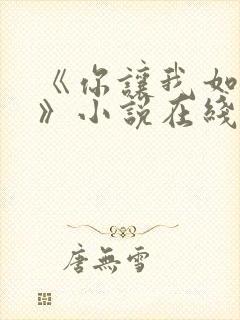 《你讓我如
》小說在綫
唐無雪